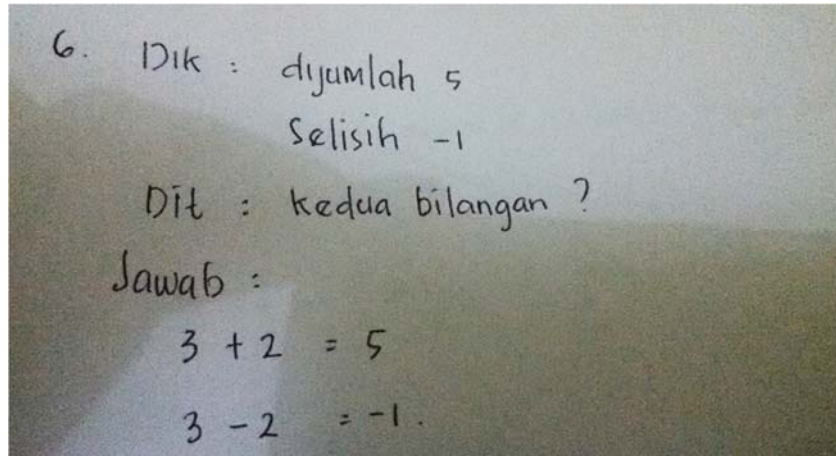 6. Dik : dijumlah 5
Selisih -1
Dit : kedua bilangan ?
Jawab :
3 + 2 = 5
3 - 2 = -1.